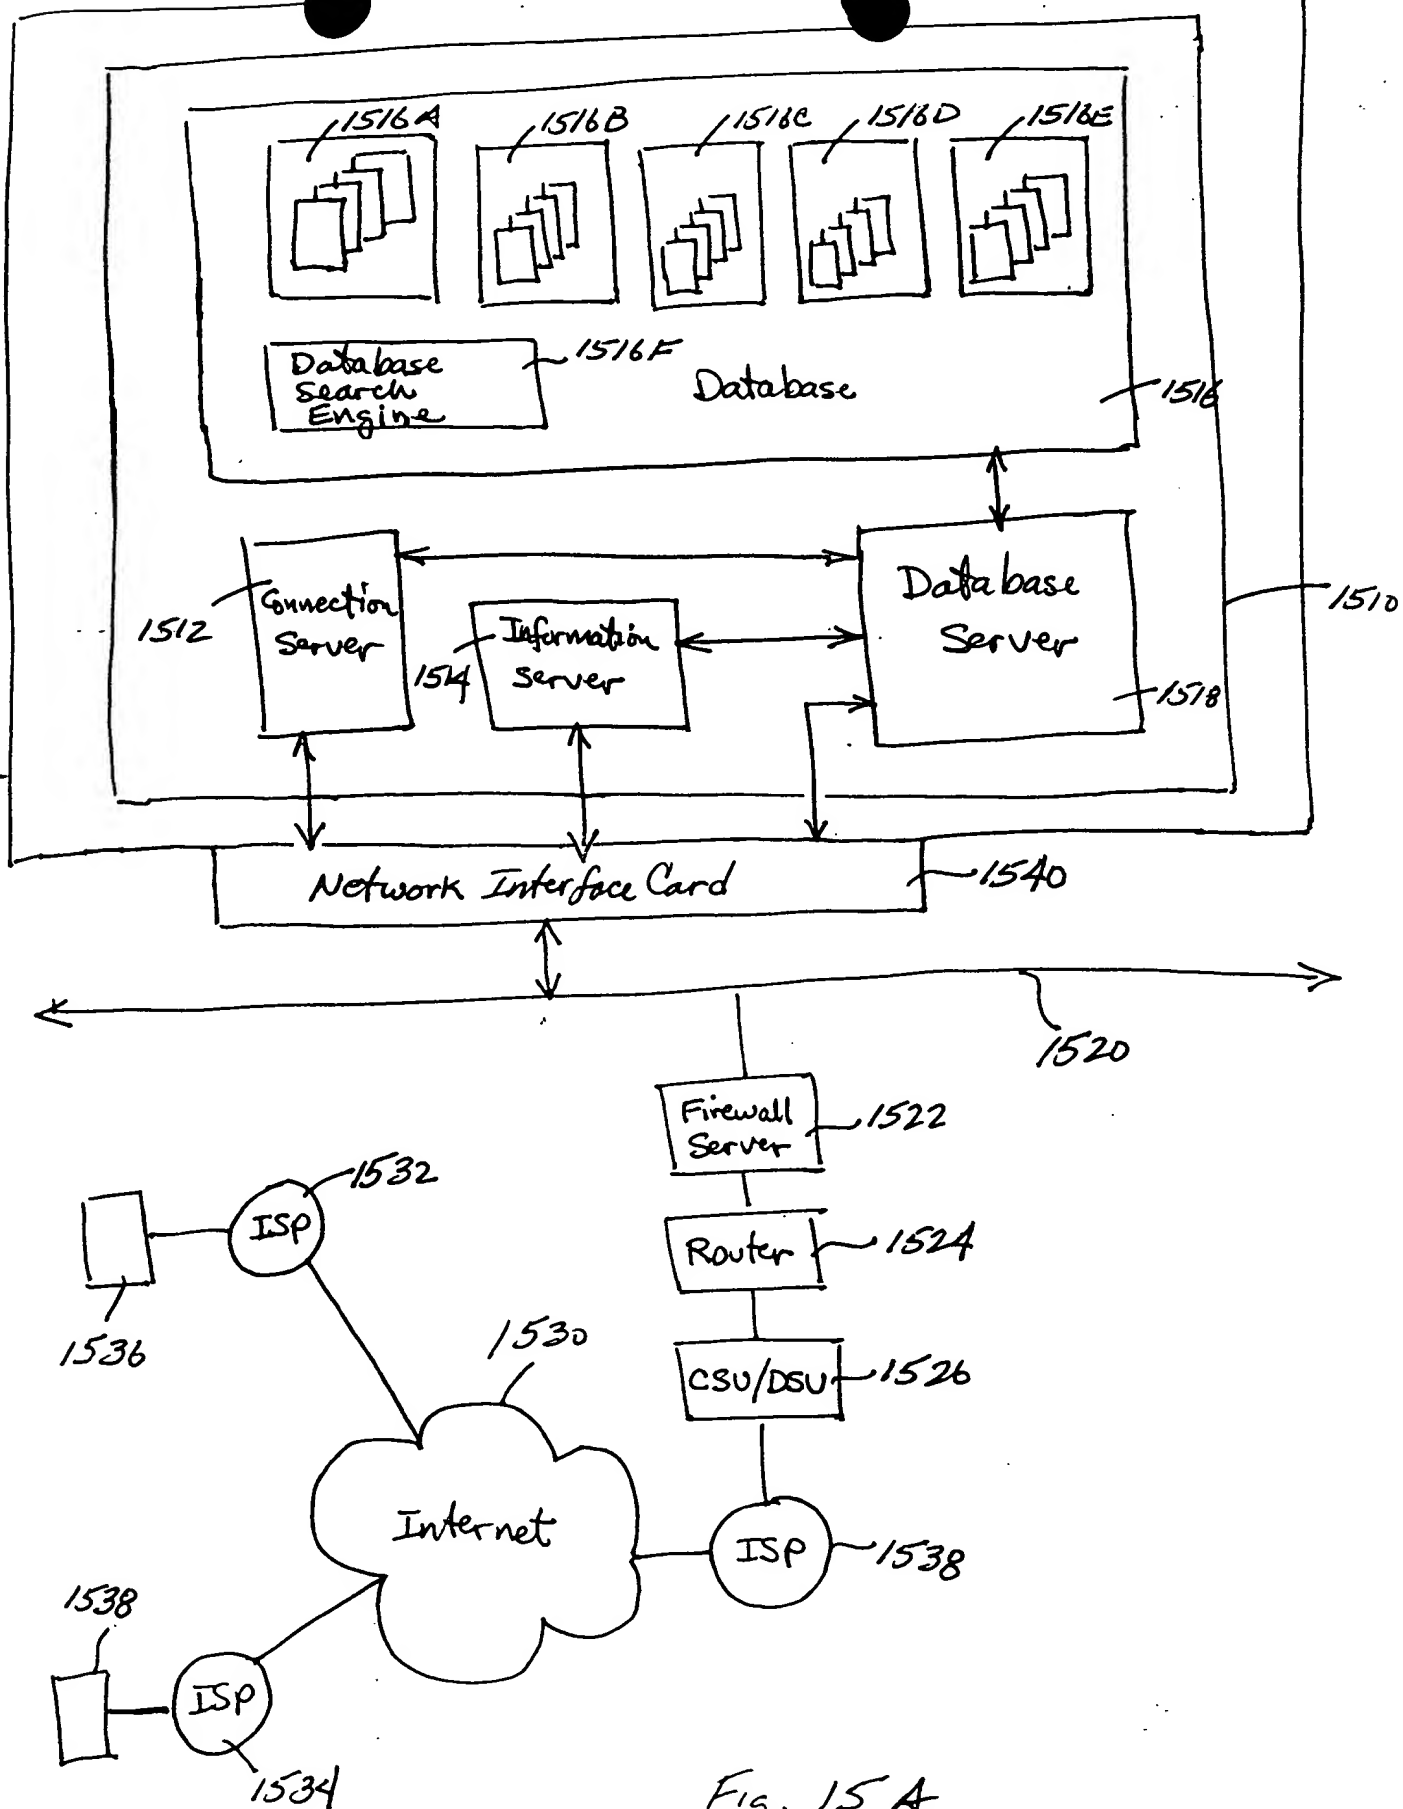 1516A
1516B
1516C
1516D
1516E
Database
Search
Engine
1516F
Database
1516
Connection
Server
1512
Information
Server
1514
Database
Server
1518
1510
Network Interface Card
1540
1520
Firewall
Server
1522
ISP
1532
Router
1524
1536
1530
CSU/DSU
1526
Internet
ISP
1538
1538
ISP
1534
Fig. 15A